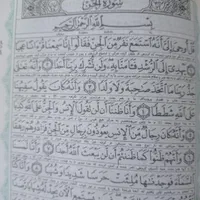 سُورَةُ الْجِنِّ
بِسْمِ اللَّهِ الرَّحْمَٰنِ الرَّحِيمِ
قُلْ أُوحِيَ إِلَيَّ أَنَّهُ اسْتَمَعَ نَفَرٌ مِنَ الْجِنِّ فَقَالُوا إِنَّا سَمِعْنَا قُرْآنًا عَجَبًا
يَهْدِي إِلَى الرُّشْدِ فَآمَنَّا بِهِ وَلَنْ نُشْرِكَ بِرَبِّنَا أَحَدًا ٢ وَأَنَّهُ تَعَالَىٰ
جَدُّ رَبِّنَا مَا اتَّخَذَ صَاحِبَةً وَلَا وَلَدًا ٣ وَأَنَّهُ كَانَ يَقُولُ سَفِيهُنَا
عَلَى اللَّهِ شَطَطًا ٤ وَأَنَّا ظَنَنَّا أَنْ لَنْ تَقُولَ الْإِنْسُ وَالْجِنُّ عَلَى اللَّهِ كَذِبًا
٥ وَأَنَّهُ كَانَ رِجَالٌ مِنَ الْإِنْسِ يَعُوذُونَ بِرِجَالٍ مِنَ الْجِنِّ فَزَادُوهُمْ رَهَقًا
٦ وَأَنَّهُمْ ظَنُّوا كَمَا ظَنَنْتُمْ أَنْ لَنْ يَبْعَثَ اللَّهُ أَحَدًا ٧ وَأَنَّا لَمَسْنَا
السَّمَاءَ فَوَجَدْنَاهَا مُلِئَتْ حَرَسًا شَدِيدًا وَشُهُبًا